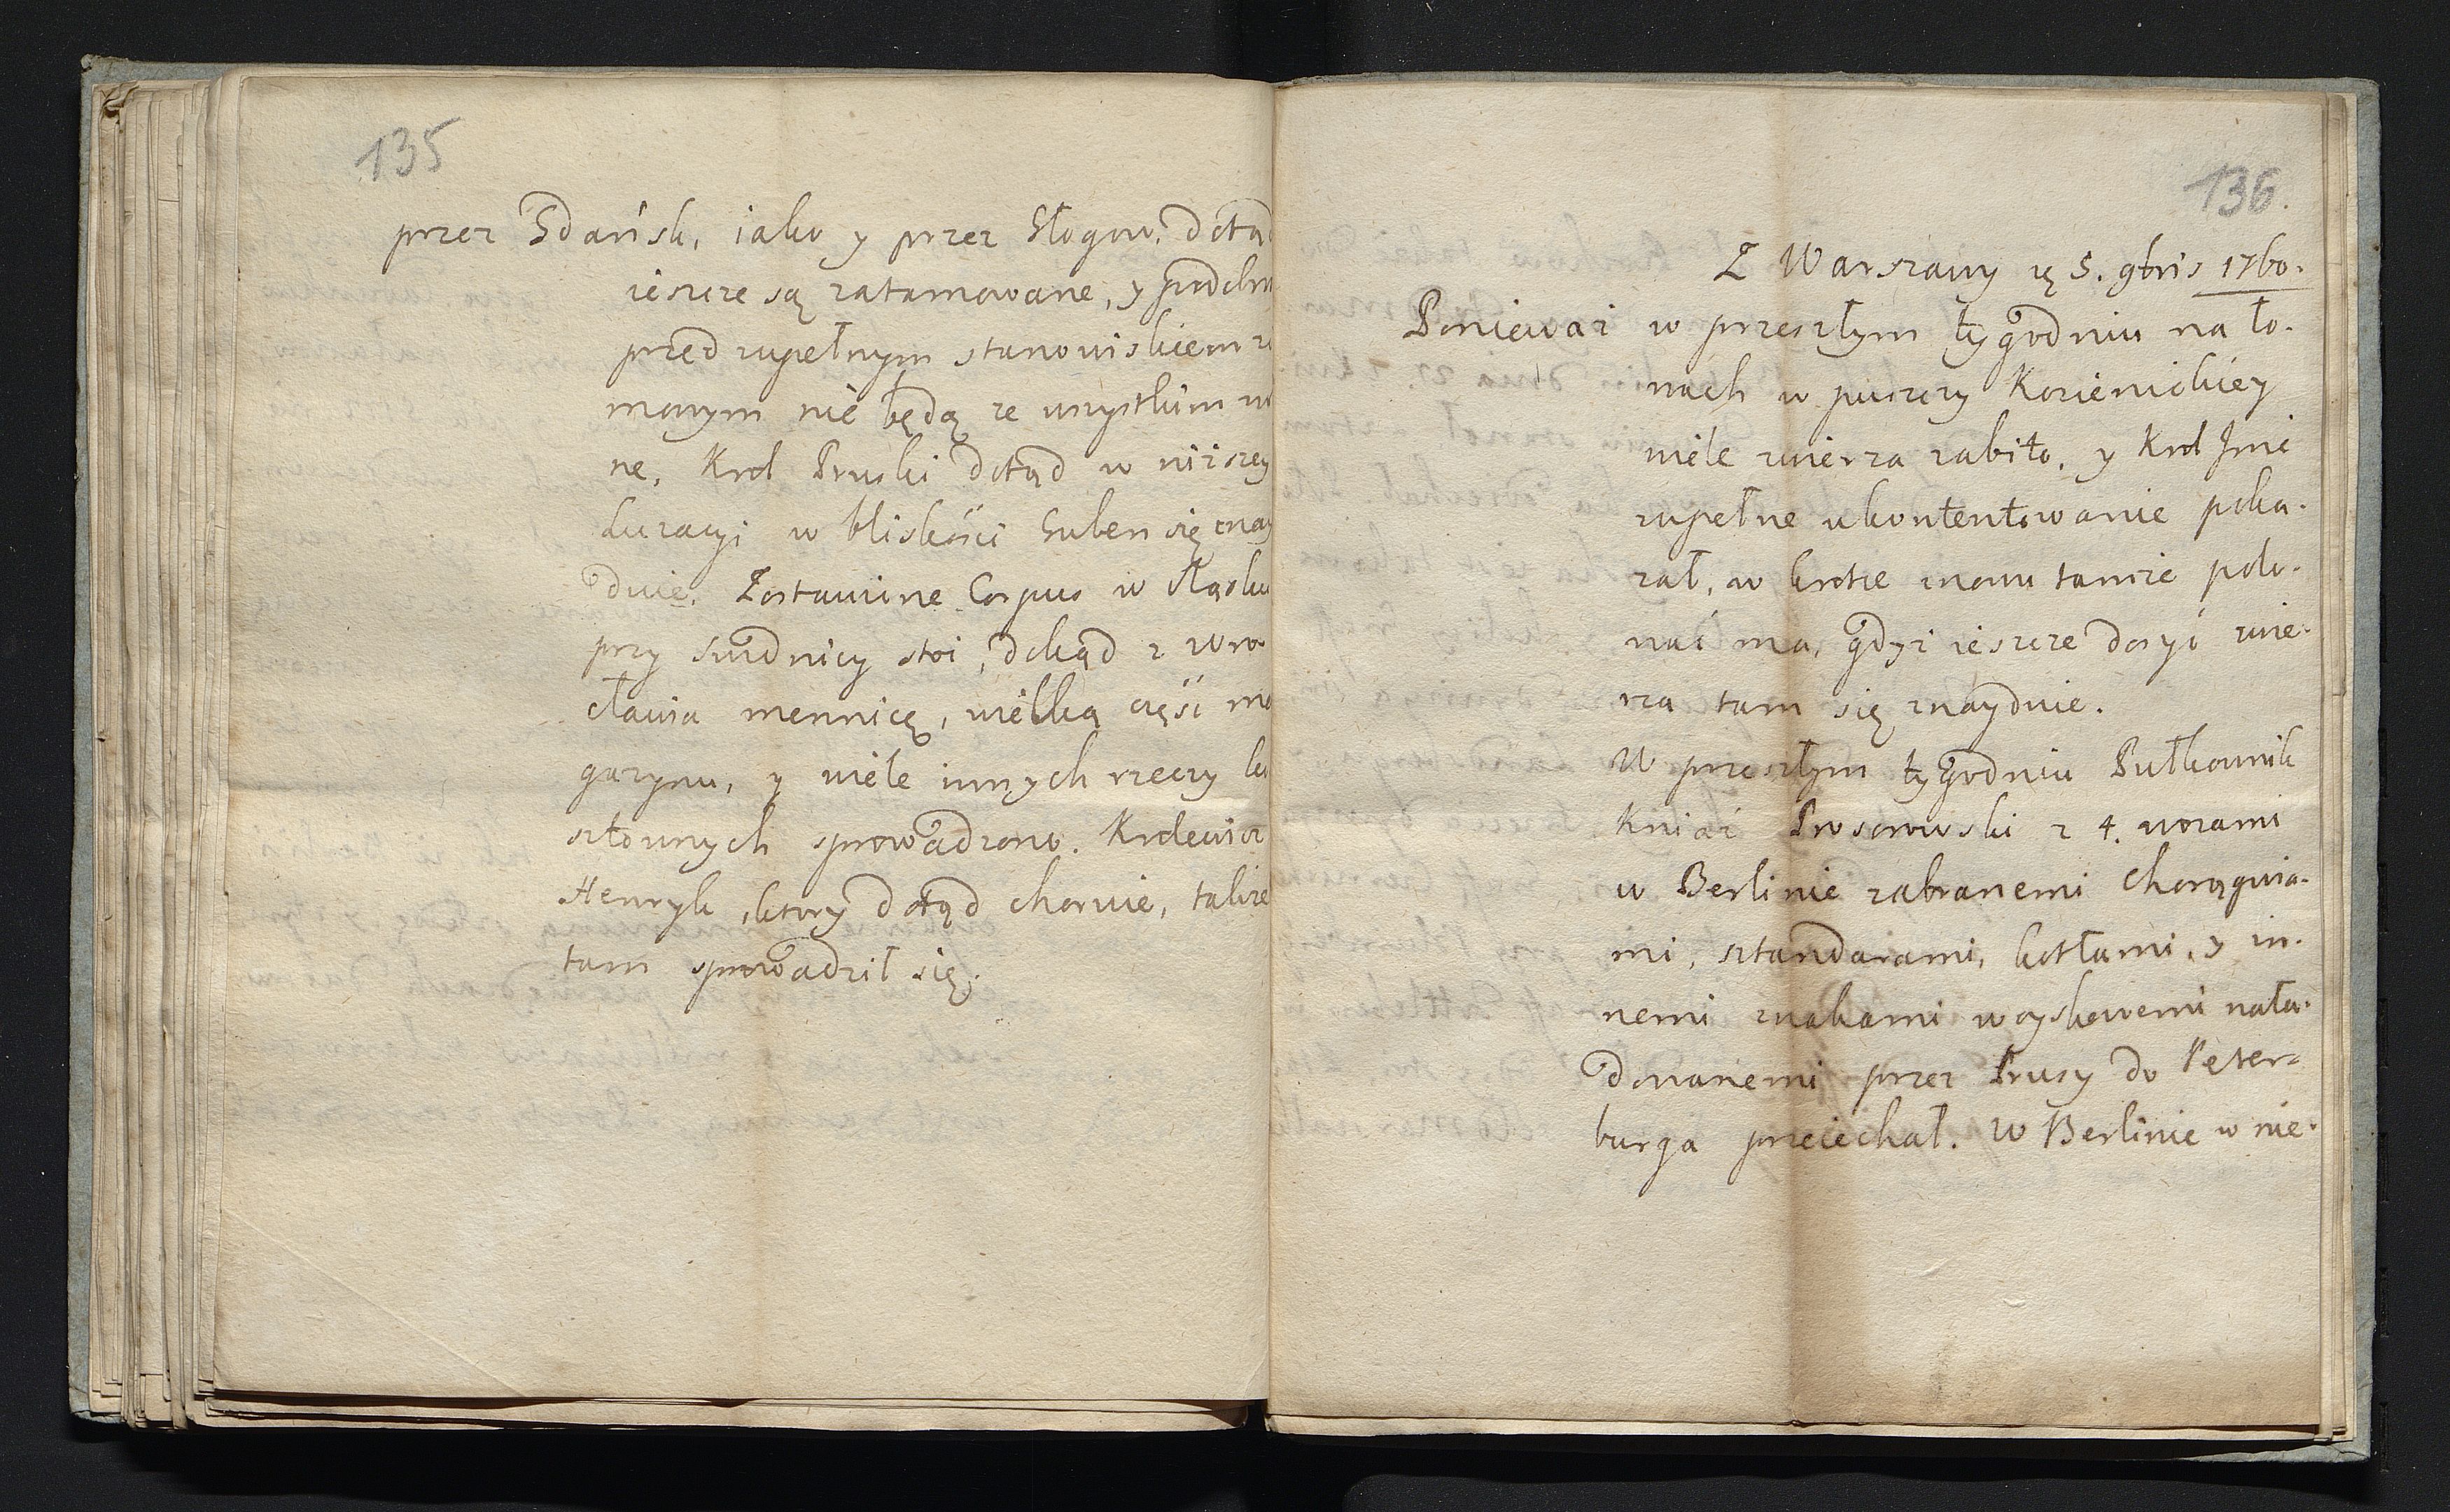 135
przez Gdańsk, iako y przez Głogow, dotąd
ieszcze są zatamowane, y podobno
przed zupełnym stanowiskiem zi
mowym nie będą ze wszystkim wol
ne, Krol Pruski dotąd w niższey
Luzacyi w bliskości Guben się znay
duie. Zostawione Corpus w Sląsku
przy Swidnicy stoi, dokąd z Wro
cławia mennicę, wielką część ma
gazynu, y wiele innych rzeczy ko
sztownych sprowadzono. Krolewicz
Henryk, ktory dotąd choruie, takze
tam sprowadził się.
136.
Z Warszawy 5. 9bris 1760.
Poniewaz w przeszłym tygodniu na ło-
wach w puszczy Kozienickiey
wiele zwierza zabito, y Krol Jmć
zupełne ukontentowanie poka-
zał, w krotce znowu tamze polo-
wać ma, gdyz ieszcze dosyć zwie-
rza tam się znayduie.
W przeszłym tygodniu Pułkownik
Kniaź Prosorowski z 4. wozami
w Berlinie zabranemi Chorągwia-
mi, sztandarami, kotłami, y in-
nemi znakami woyskowemi nała-
dowanemi przez Prusy do Peter-
burga przeiechał. W Berlinie w nie-